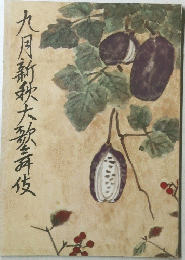 九月新秋大歌舞伎